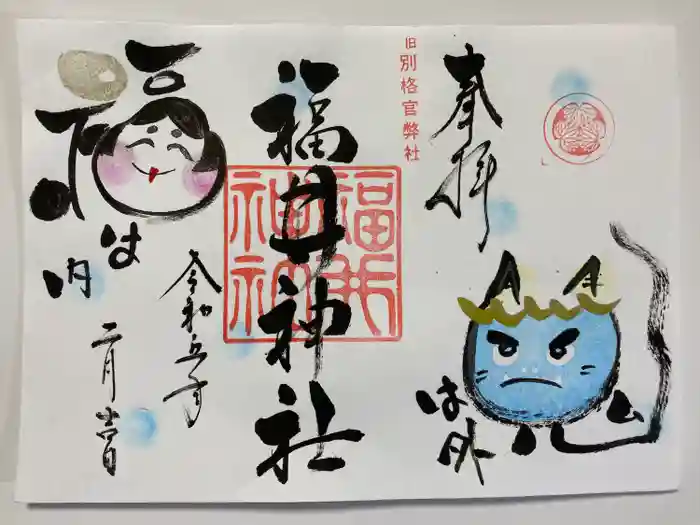 奉拝
鬼
は外
旧別格官弊社
福井神社
福井
神社
福
は内
令和五年
二月吉日